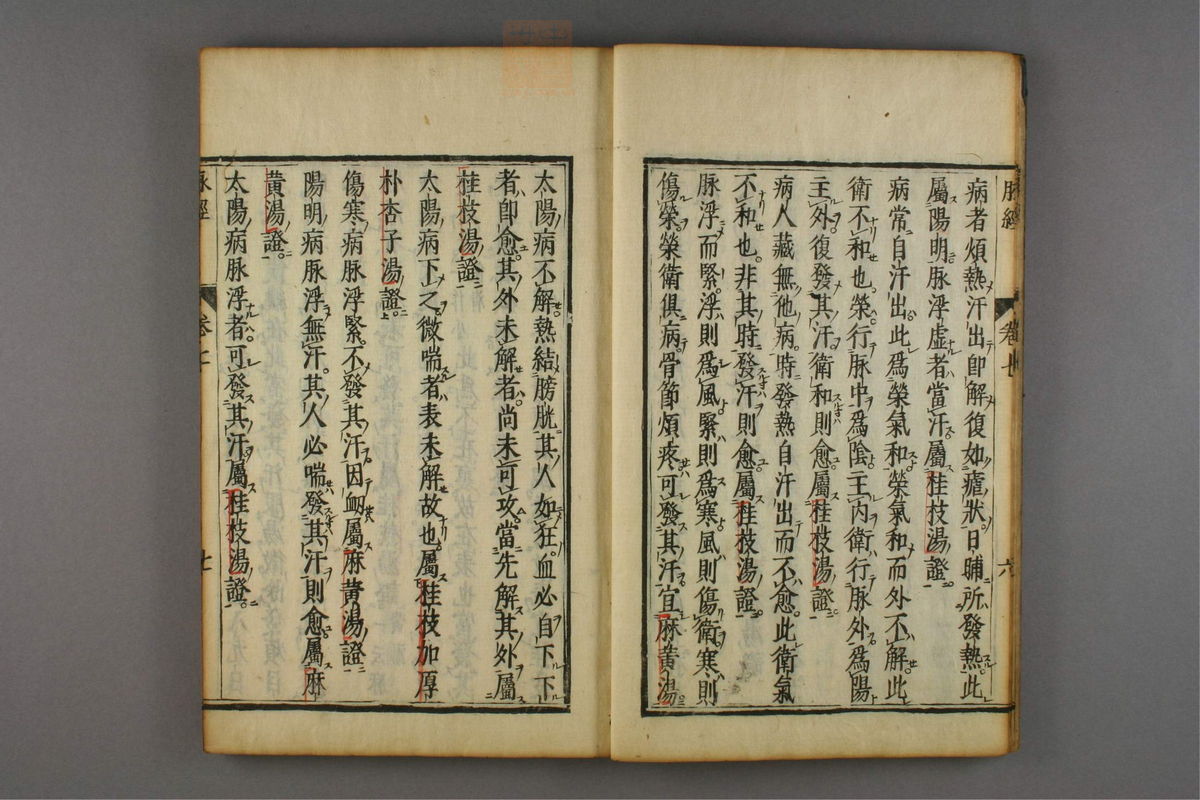 脉經　卷七　六
病者煩熱汗出即解復如瘧狀日晡所發熱此
屬陽明脉浮虚者當汗屬桂枝湯證
病常自汗出此爲榮氣和榮氣和而外不解此
衛不和也榮行脉中爲陰主内衛行脉外爲陽
主外復發其汗衛和則愈屬桂枝湯證
病人藏無他病時發熱自汗出而不愈此衛氣
不和也非其時發汗則愈屬桂枝湯證
脉浮而緊浮則爲風緊則爲寒風則傷衛寒則
傷榮榮衛俱病骨節煩疼可發其汗宜麻黄湯
太陽病不解熱結膀胱其人如狂血必自下下
者即愈其外未解者尚未可攻當先解其外屬
桂枝湯證
太陽病下之微喘者表未解故也屬桂枝加厚
朴杏子湯證
傷寒病脉浮緊不發其汗因衂屬麻黄湯證
陽明病脉浮無汗其人必喘發其汗則愈屬麻
黄湯證
太陽病脉浮者可發其汗屬桂枝湯證
脉經　卷七　七